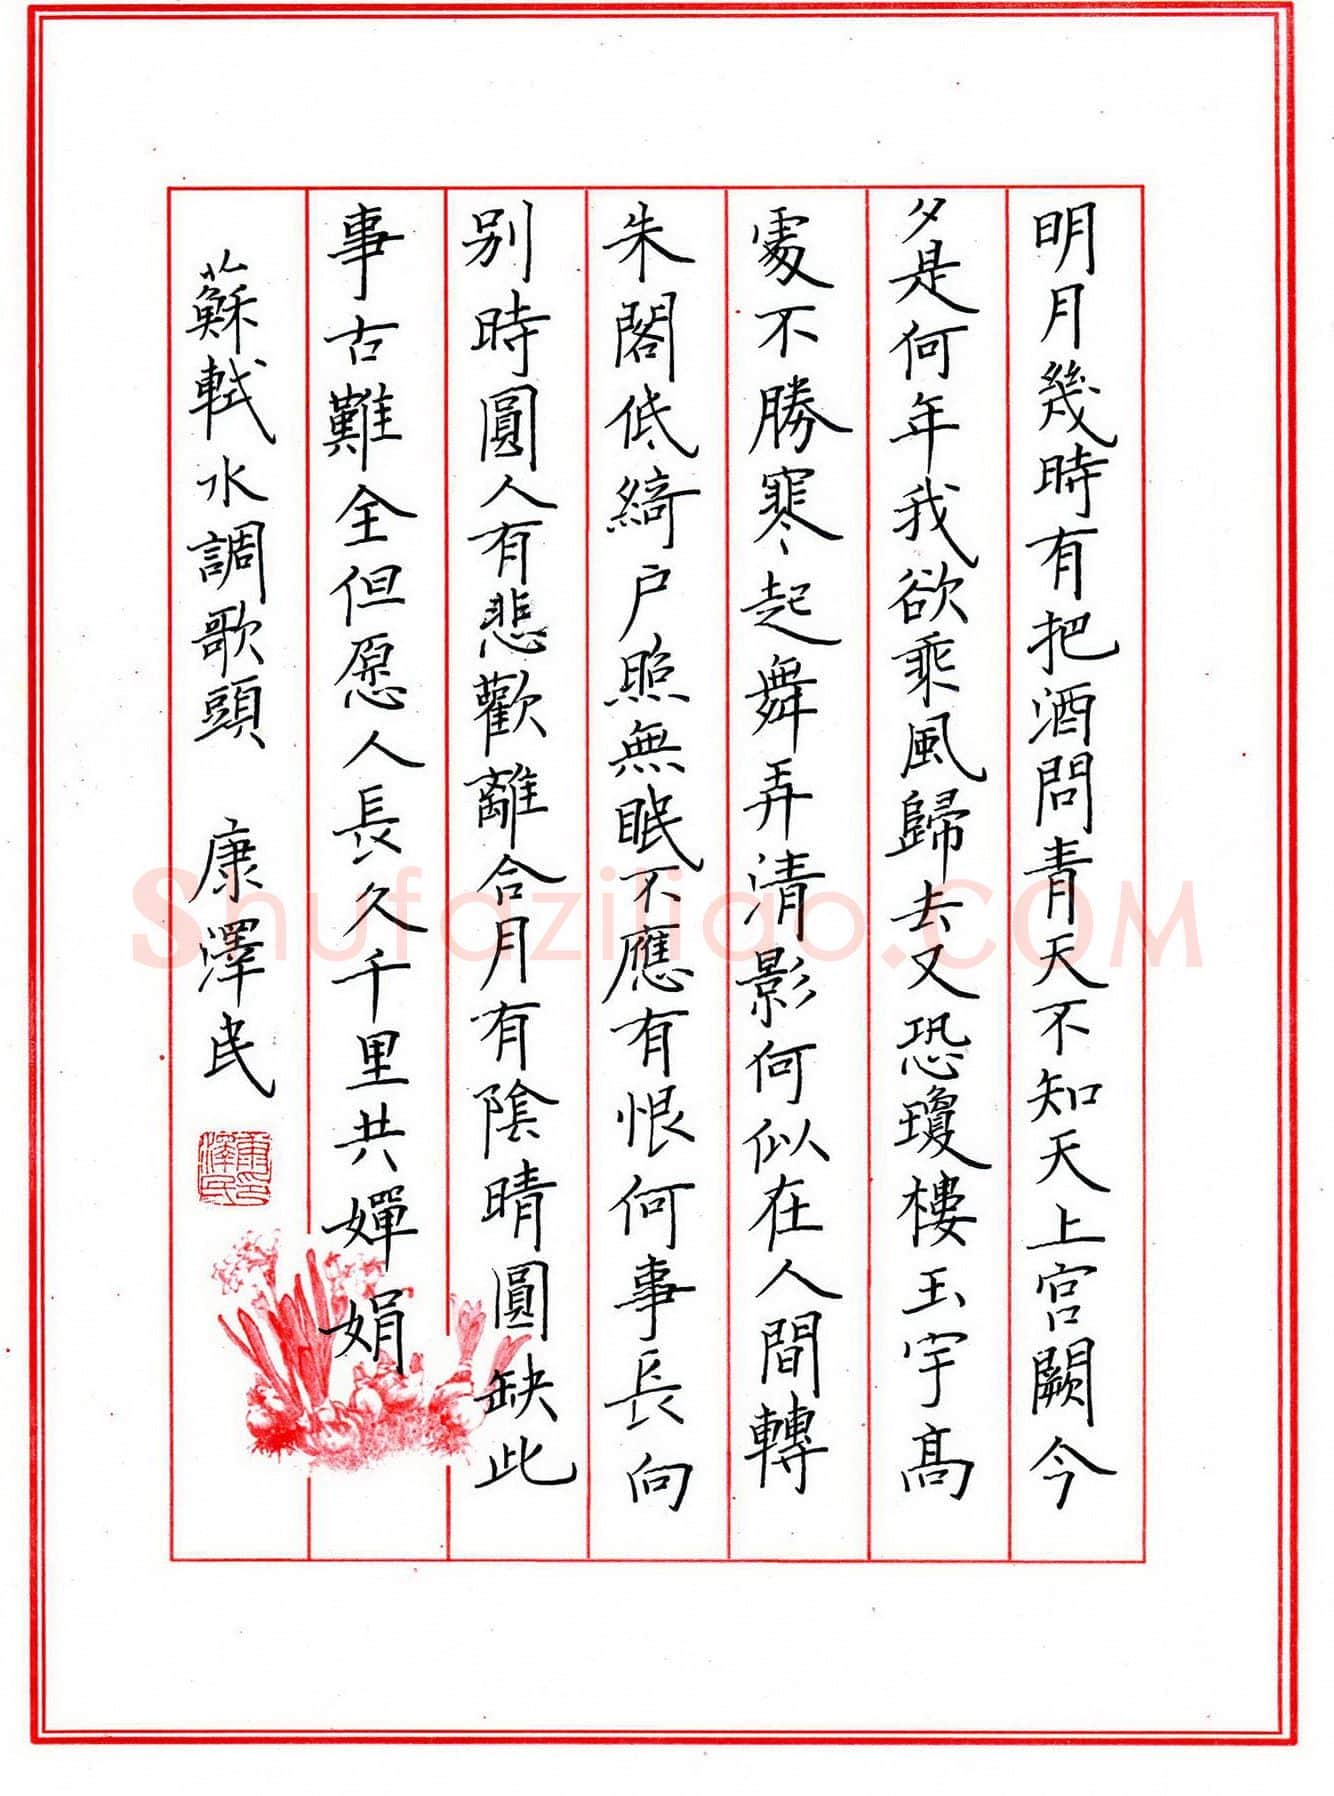 明月幾時有把酒問青天不知天上宮闕今
夕是何年我欲乘風歸去又恐瓊樓玉宇高
處不勝寒起舞弄清影何似在人間轉
朱閣低綺户照無眠不應有恨何事長向
别時圓人有悲歡離合月有陰晴圓缺此
事古難全但愿人長久千里共嬋娟
蘇軾水調歌頭 康澤民
康印澤民
Shufaziliao.COM